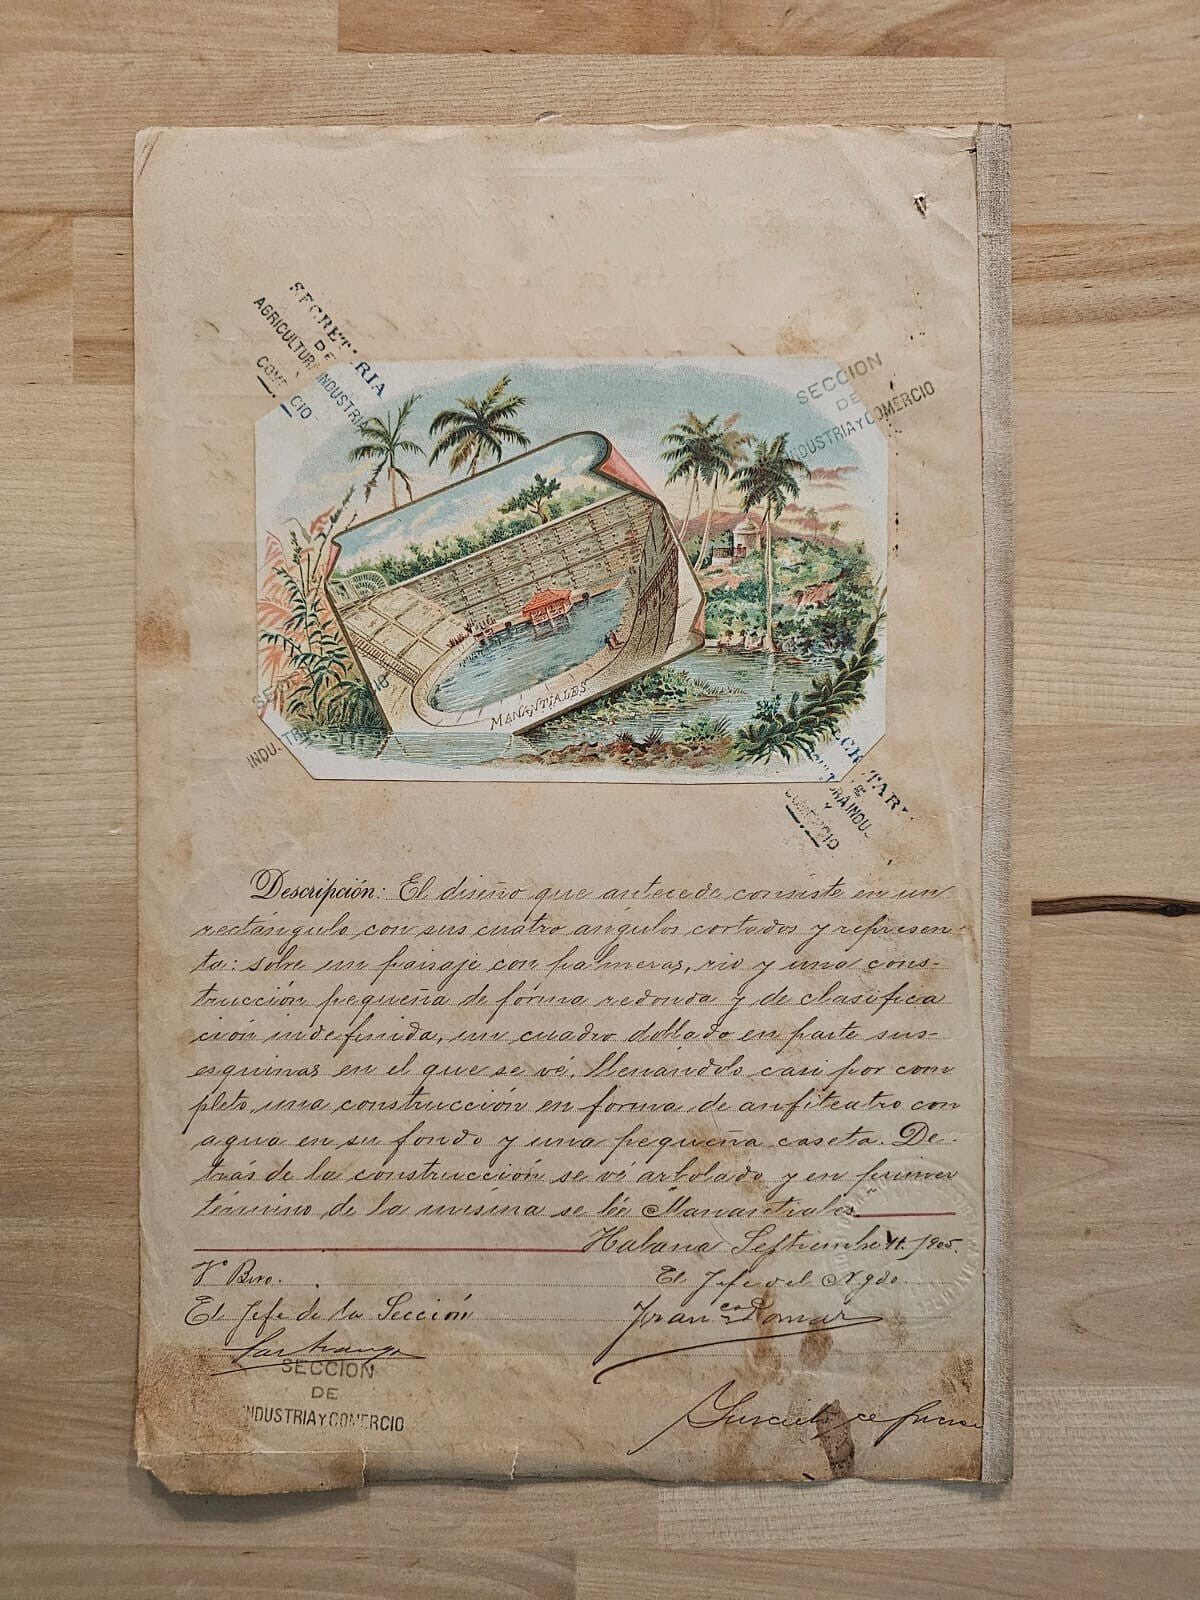 SECRETARIA
DE
AGRICULTURA INDUSTRIA
COMERCIO
SECCION
DE
INDUSTRIA Y COMERCIO
MANANTIALES
INDUSTRIA
Descripción: El diseño que antecede consiste en un
rectángulo con sus cuatro ángulos cortados y represen-
ta: sobre un paisaje con palmeras, rio y una cons-
trucción pequeña de forma redonda y de clasifica
ción indefinida, un cuadro doblado en parte sus-
esquinas en el que se vé, llenándolo casi por com
pleto, una construcción en forma de anfiteatro con
agua en su fondo y una pequeña caseta. De-
trás de la construcción se vé arbolado y en primer
término de la misma se lée "Manantiales"
Habana Septiembre 11. 1905.
Vº Bno. El Jefe del Ngdo.
El Jefe de la Sección Franco
SECCION
DE
INDUSTRIA Y COMERCIO